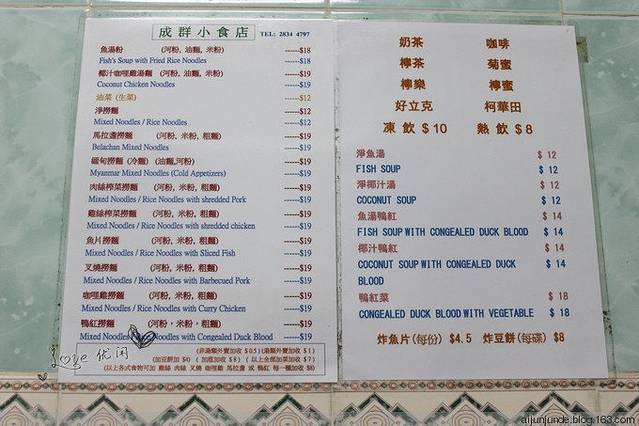 成群小食店 TEL: 2834 4797
魚湯粉 (河粉, 油麵, 米粉) -----$18
Fish's Soup with Fried Rice Noodles -----$18
椰汁咖哩雞湯麵 (河粉, 油麵, 米粉) -----$19
Coconut Chicken Noodles -----$19
油菜 (生菜) -----$12
淨撈麵 -----$12
Mixed Noodles / Rice Noodles -----$12
馬拉盞撈麵 (河粉, 米粉, 粗麵) -----$19
Belachan Mixed Noodles -----$19
緬甸撈麵 (冷麵) (油麵,河粉) -----$19
Myanmar Mixed Noodles (Cold Appetizers) -----$19
肉絲榨菜撈麵 (河粉, 米粉, 粗麵) -----$19
Mixed Noodles / Rice Noodles with shredded Pork -----$19
雞絲榨菜撈麵 (河粉, 米粉, 粗麵) -----$19
Mixed Noodles / Rice Noodles with shredded chicken -----$19
魚片撈麵 (河粉, 米粉, 粗麵) -----$19
Mixed Noodles / Rice Noodles with Sliced Fish -----$19
叉燒撈麵 (河粉, 米粉, 粗麵) -----$19
Mixed Noodles / Rice Noodles with Barbecued Pork -----$19
咖哩雞撈麵 (河粉, 米粉, 粗麵) -----$19
Mixed Noodles / Rice Noodles with Curry Chicken -----$19
鴨紅撈麵 (河粉, 米粉, 粗麵) -----$19
Mixed Noodles / Rice Noodles with Congealed Duck Blood -----$19
(非湯類外賣加收 $0.5) (湯類外賣加收 $1)
(加豆餅加 $4) (加底加收 $8) (以上全部加菜加收 $7)
(以上各式食物可加 雞絲 肉絲 叉燒 咖哩雞 馬拉盞 或 鴨紅 每一種加收 $8)
Love 优闲
奶茶 咖啡
檸茶 菊蜜
檸樂 檸蜜
好立克 柯華田
凍飲 $10 熱飲 $8
淨魚湯 $ 12
FISH SOUP $ 12
淨椰汁湯 $ 12
COCONUT SOUP $ 12
魚湯鴨紅 $ 14
FISH SOUP WITH CONGEALED DUCK BLOOD $ 14
椰汁鴨紅 $ 14
COCONUT SOUP WITH CONGEALED DUCK $ 14
BLOOD
鴨紅菜 $ 18
CONGEALED DUCK BLOOD WITH VEGETABLE $ 18
炸魚片(每份) $4.5 炸豆餅(每碟) $8
aijunjunde.blog.163.com